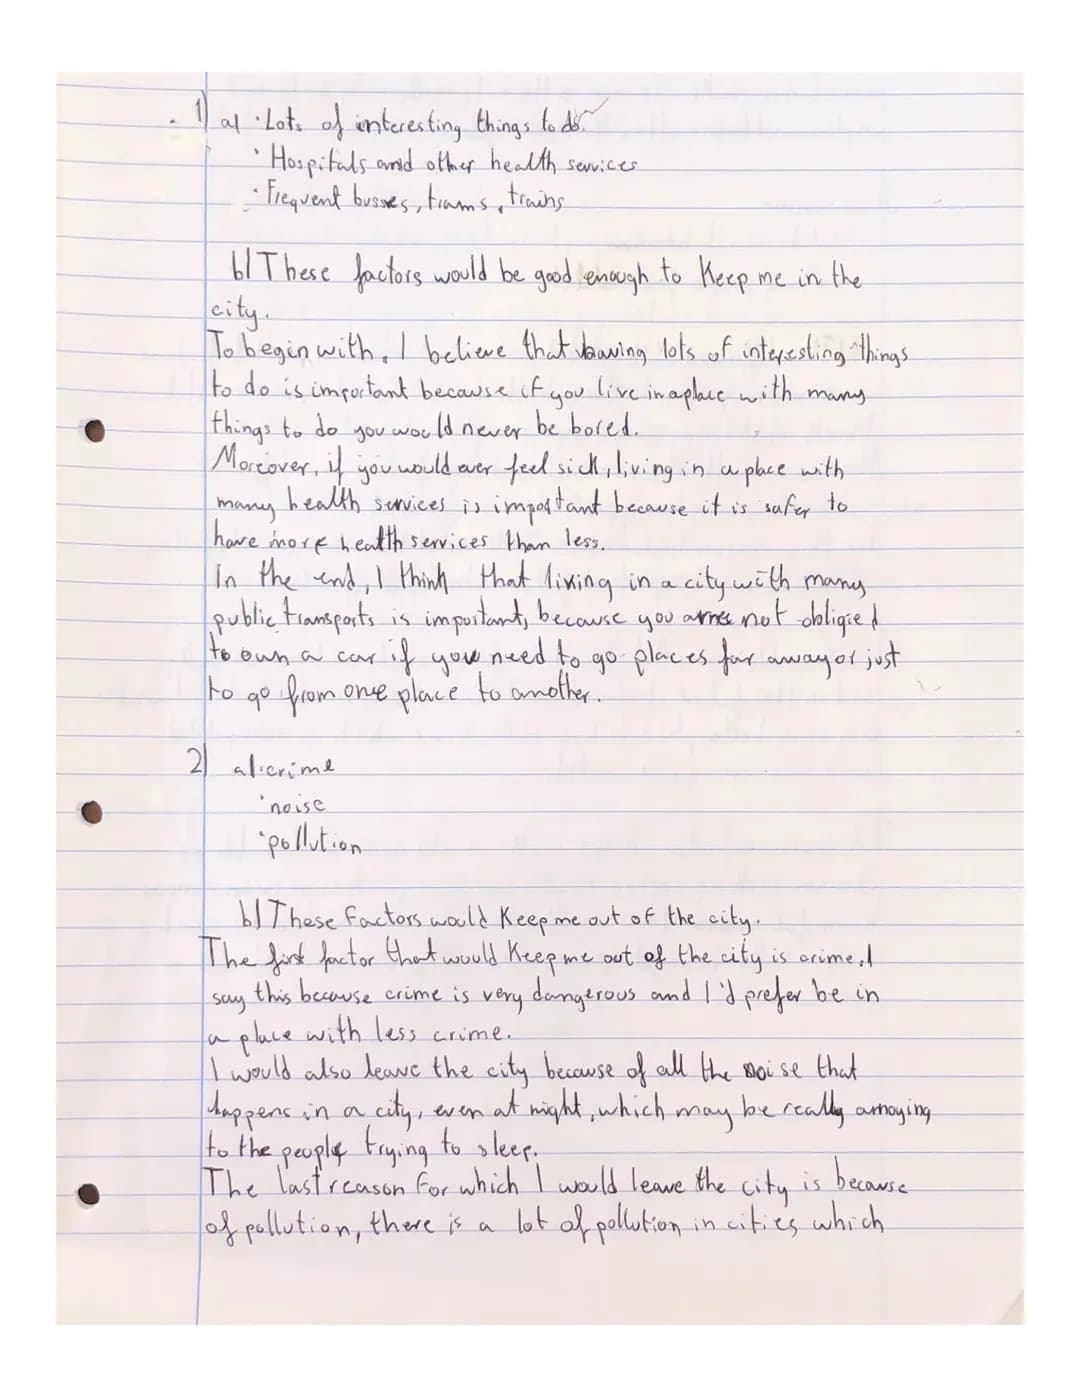 1) a) · Lots of interesting things to do.
· Hospitals and other health services
· Frequent busses, trams, trains
b) These factors would be good enough to Keep me in the
city.
To begin with, I believe that having lots of interesting things
to do is important because if you live in a place with many
things to do you would never be bored.
Moreover, if you would ever feel sick, living in a place with
many health services is important because it is safer to
have more health services than less.
In the end, I think that living in a city with many
public transports is important, because you are not obligied
to own a car if you need to go places far away or just
to go from one place to another.
2) a) · crime
· noise
· pollution
b) These factors would Keep me out of the city.
The first factor that would Keep me out of the city is crime, I
say this because crime is very dangerous and I'd prefer be in
a place with less crime.
I would also leave the city because of all the noise that
happens in a city, even at night, which may be really annoying
to the people trying to sleep.
The last reason for which I would leave the city is because
of pollution, there is a lot of pollution in cities which